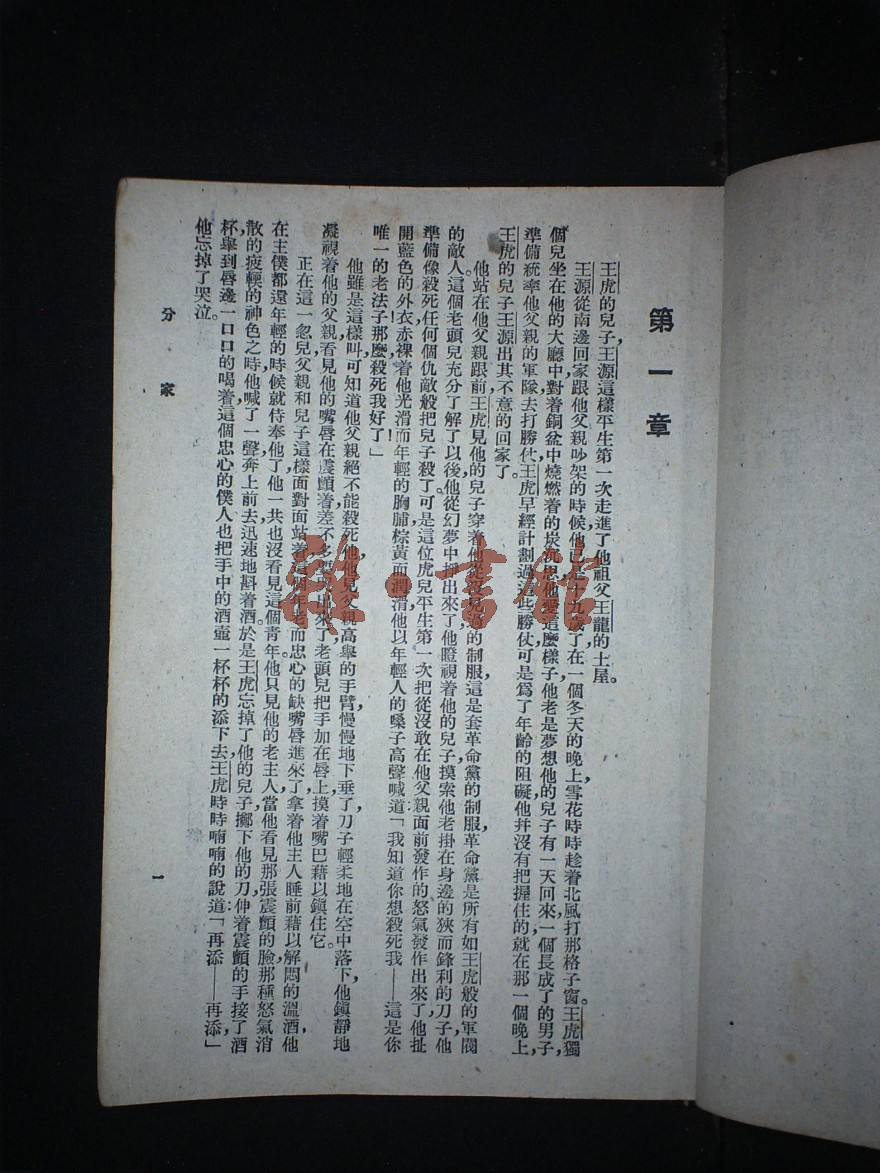 第一章
王虎的兒子,王源這樣平生第一次走進了他祖父王龍的土屋。
王源從南邊回家跟他父親吵架的時候,他已是十九歲了,在一個冬天的晚上,雪花時時趁着北風打那格子窗。王虎獨
個兒坐在他的大廳中,對着銅盆中燒燃着的炭沉思,他愛這麼樣子,他老是夢想他的兒子有一天回來,一個長成了的男子,
準備統率他父親的軍隊去打勝仗,王虎早經計劃過這些勝仗,可是爲了年齡的阻礙,他幷沒有把握住的,就在那一個晚上,
王虎的兒子王源出其不意的回家了。
他站在他父親跟前,王虎見他的兒子穿着他從沒見過的制服,這是套革命黨的制服,革命黨是所有如王虎般的軍閥
的敵人。這個老頭兒充分了解了以後,他從幻夢中掙出來了,他瞪視着他的兒子,摸索他老掛在身邊的狹而鋒利的刀子,他
準備像殺死任何個仇敵般把兒子殺了。可是這位虎兒平生第一次把從沒敢在他父親面前發作的怒氣發作出來了,他扯
開藍色的外衣,赤裸着他光滑而年輕的胸脯,棕黃而潤滑,他以年輕人的嗓子高聲喊道:「我知道你想殺死我——這是你
唯一的老法子!那麼殺死我好了!」
他雖是這樣叫,可知道他父親絕不能殺死他,他見父親高舉的手臂慢慢地下垂了,刀子輕柔地在空中落下,他鎭靜地
凝視着他的父親,看見他的嘴唇在震顫着,差不多要哭出來了,老頭兒把手加在唇上,摸着嘴巴,藉以鎭住它。
正在這一忽兒,父親和兒子這樣面對面站着,這個年老而忠心的缺嘴唇進來了,拿着他主人睡前藉以解悶的溫酒,他
在主僕都還年輕的時候就侍奉他了,他一共也沒看見這個青年。他只見他的老主人,當他看見那張震顫的臉,那種怒氣消
散的疲輭的神色之時,他喊了一聲,奔上前去,迅速地斟着酒。於是王虎忘掉了他的兒子,擲下他的刀,伸着震顫的手接了酒
杯,舉到唇邊,一口口的喝着,這個忠心的僕人也把手中的酒壺一杯杯的添下去,王虎時時喃喃的說道:「再添——再添,」
他忘掉了哭泣。
分家
一